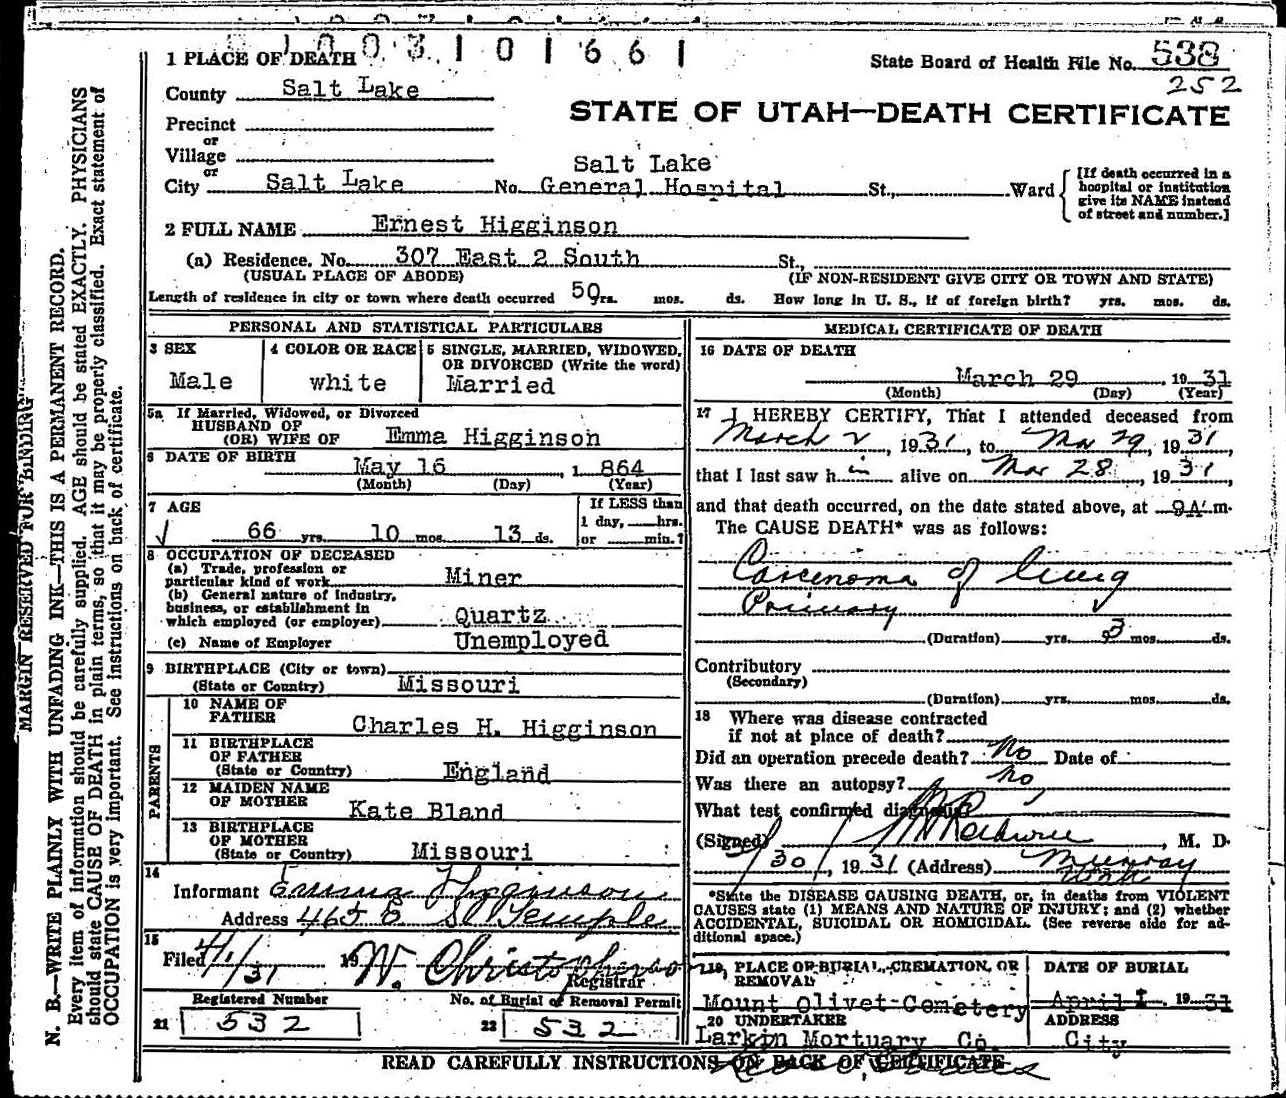 1003101661
1 PLACE OF DEATH
State Board of Health File No. 538
252
County Salt Lake
STATE OF UTAH—DEATH CERTIFICATE
Precinct
or
Village
or
Salt Lake
City Salt Lake No. General Hospital St., Ward
[If death occurred in a hospital or institution give its NAME instead of street and number.]
2 FULL NAME Ernest Higginson
(a) Residence. No. 307 East 2 South St.,
(USUAL PLACE OF ABODE) (IF NON-RESIDENT GIVE CITY OR TOWN AND STATE)
Length of residence in city or town where death occurred 50 yrs. mos. ds. How long in U. S., if of foreign birth? yrs. mos. ds.
PERSONAL AND STATISTICAL PARTICULARS
3 SEX
Male
4 COLOR OR RACE
white
5 SINGLE, MARRIED, WIDOWED, OR DIVORCED (Write the word)
Married
5a If Married, Widowed, or Divorced
HUSBAND OF
(OR) WIFE OF Emma Higginson
6 DATE OF BIRTH
May 16, 1864
(Month) (Day) (Year)
7 AGE
66 yrs. 10 mos. 13 ds.
If LESS than
1 day, hrs.
or min.?
8 OCCUPATION OF DECEASED
(a) Trade, profession or
particular kind of work Miner
(b) General nature of industry,
business, or establishment in
which employed (or employer) Quartz
(c) Name of Employer Unemployed
9 BIRTHPLACE (City or town)
(State or Country) Missouri
PARENTS
10 NAME OF
FATHER Charles H. Higginson
11 BIRTHPLACE
OF FATHER
(State or Country) England
12 MAIDEN NAME
OF MOTHER Kate Bland
13 BIRTHPLACE
OF MOTHER
(State or Country) Missouri
14
Informant Emma Higginson
Address 465 E So Temple
15
Filed 4/1/31 19 W. Christopherson
Registrar
Registered Number
21 532
No. of Burial or Removal Permit
22 532
MEDICAL CERTIFICATE OF DEATH
16 DATE OF DEATH
March 29, 1931
(Month) (Day) (Year)
17 I HEREBY CERTIFY, That I attended deceased from
March 2, 1931, to Mar 29, 1931
that I last saw him alive on Mar 28, 1931
and that death occurred, on the date stated above, at 9A m.
The CAUSE DEATH* was as follows:
Carcinoma of lung
Primary
(Duration) yrs. 3 mos. ds.
Contributory
(Secondary)
(Duration) yrs. mos. ds.
18 Where was disease contracted
if not at place of death?
Did an operation precede death? No Date of
Was there an autopsy? no
What test confirmed diagnosis?
(Signed) , M. D.
3/30/, 1931 (Address) Murray
Utah
*State the DISEASE CAUSING DEATH, or, in deaths from VIOLENT
CAUSES state (1) MEANS AND NATURE OF INJURY; and (2) whether
ACCIDENTAL, SUICIDAL OR HOMICIDAL. (See reverse side for ad-
ditional space.)
19 PLACE OF BURIAL, CREMATION, OR
REMOVAL
Mount Olivet Cemetery
DATE OF BURIAL
April 1, 1931
20 UNDERTAKER
Larkin Mortuary Co.
ADDRESS
City
READ CAREFULLY INSTRUCTIONS ON BACK OF CERTIFICATE
MARGIN RESERVED FOR BINDING
N. B.—WRITE PLAINLY WITH UNFADING INK—THIS IS A PERMANENT RECORD.
Every item of information should be carefully supplied. AGE should be stated EXACTLY. PHYSICIANS
should state CAUSE OF DEATH in plain terms, so that it may be properly classified. Exact statement of
OCCUPATION is very important. See instructions on back of certificate.